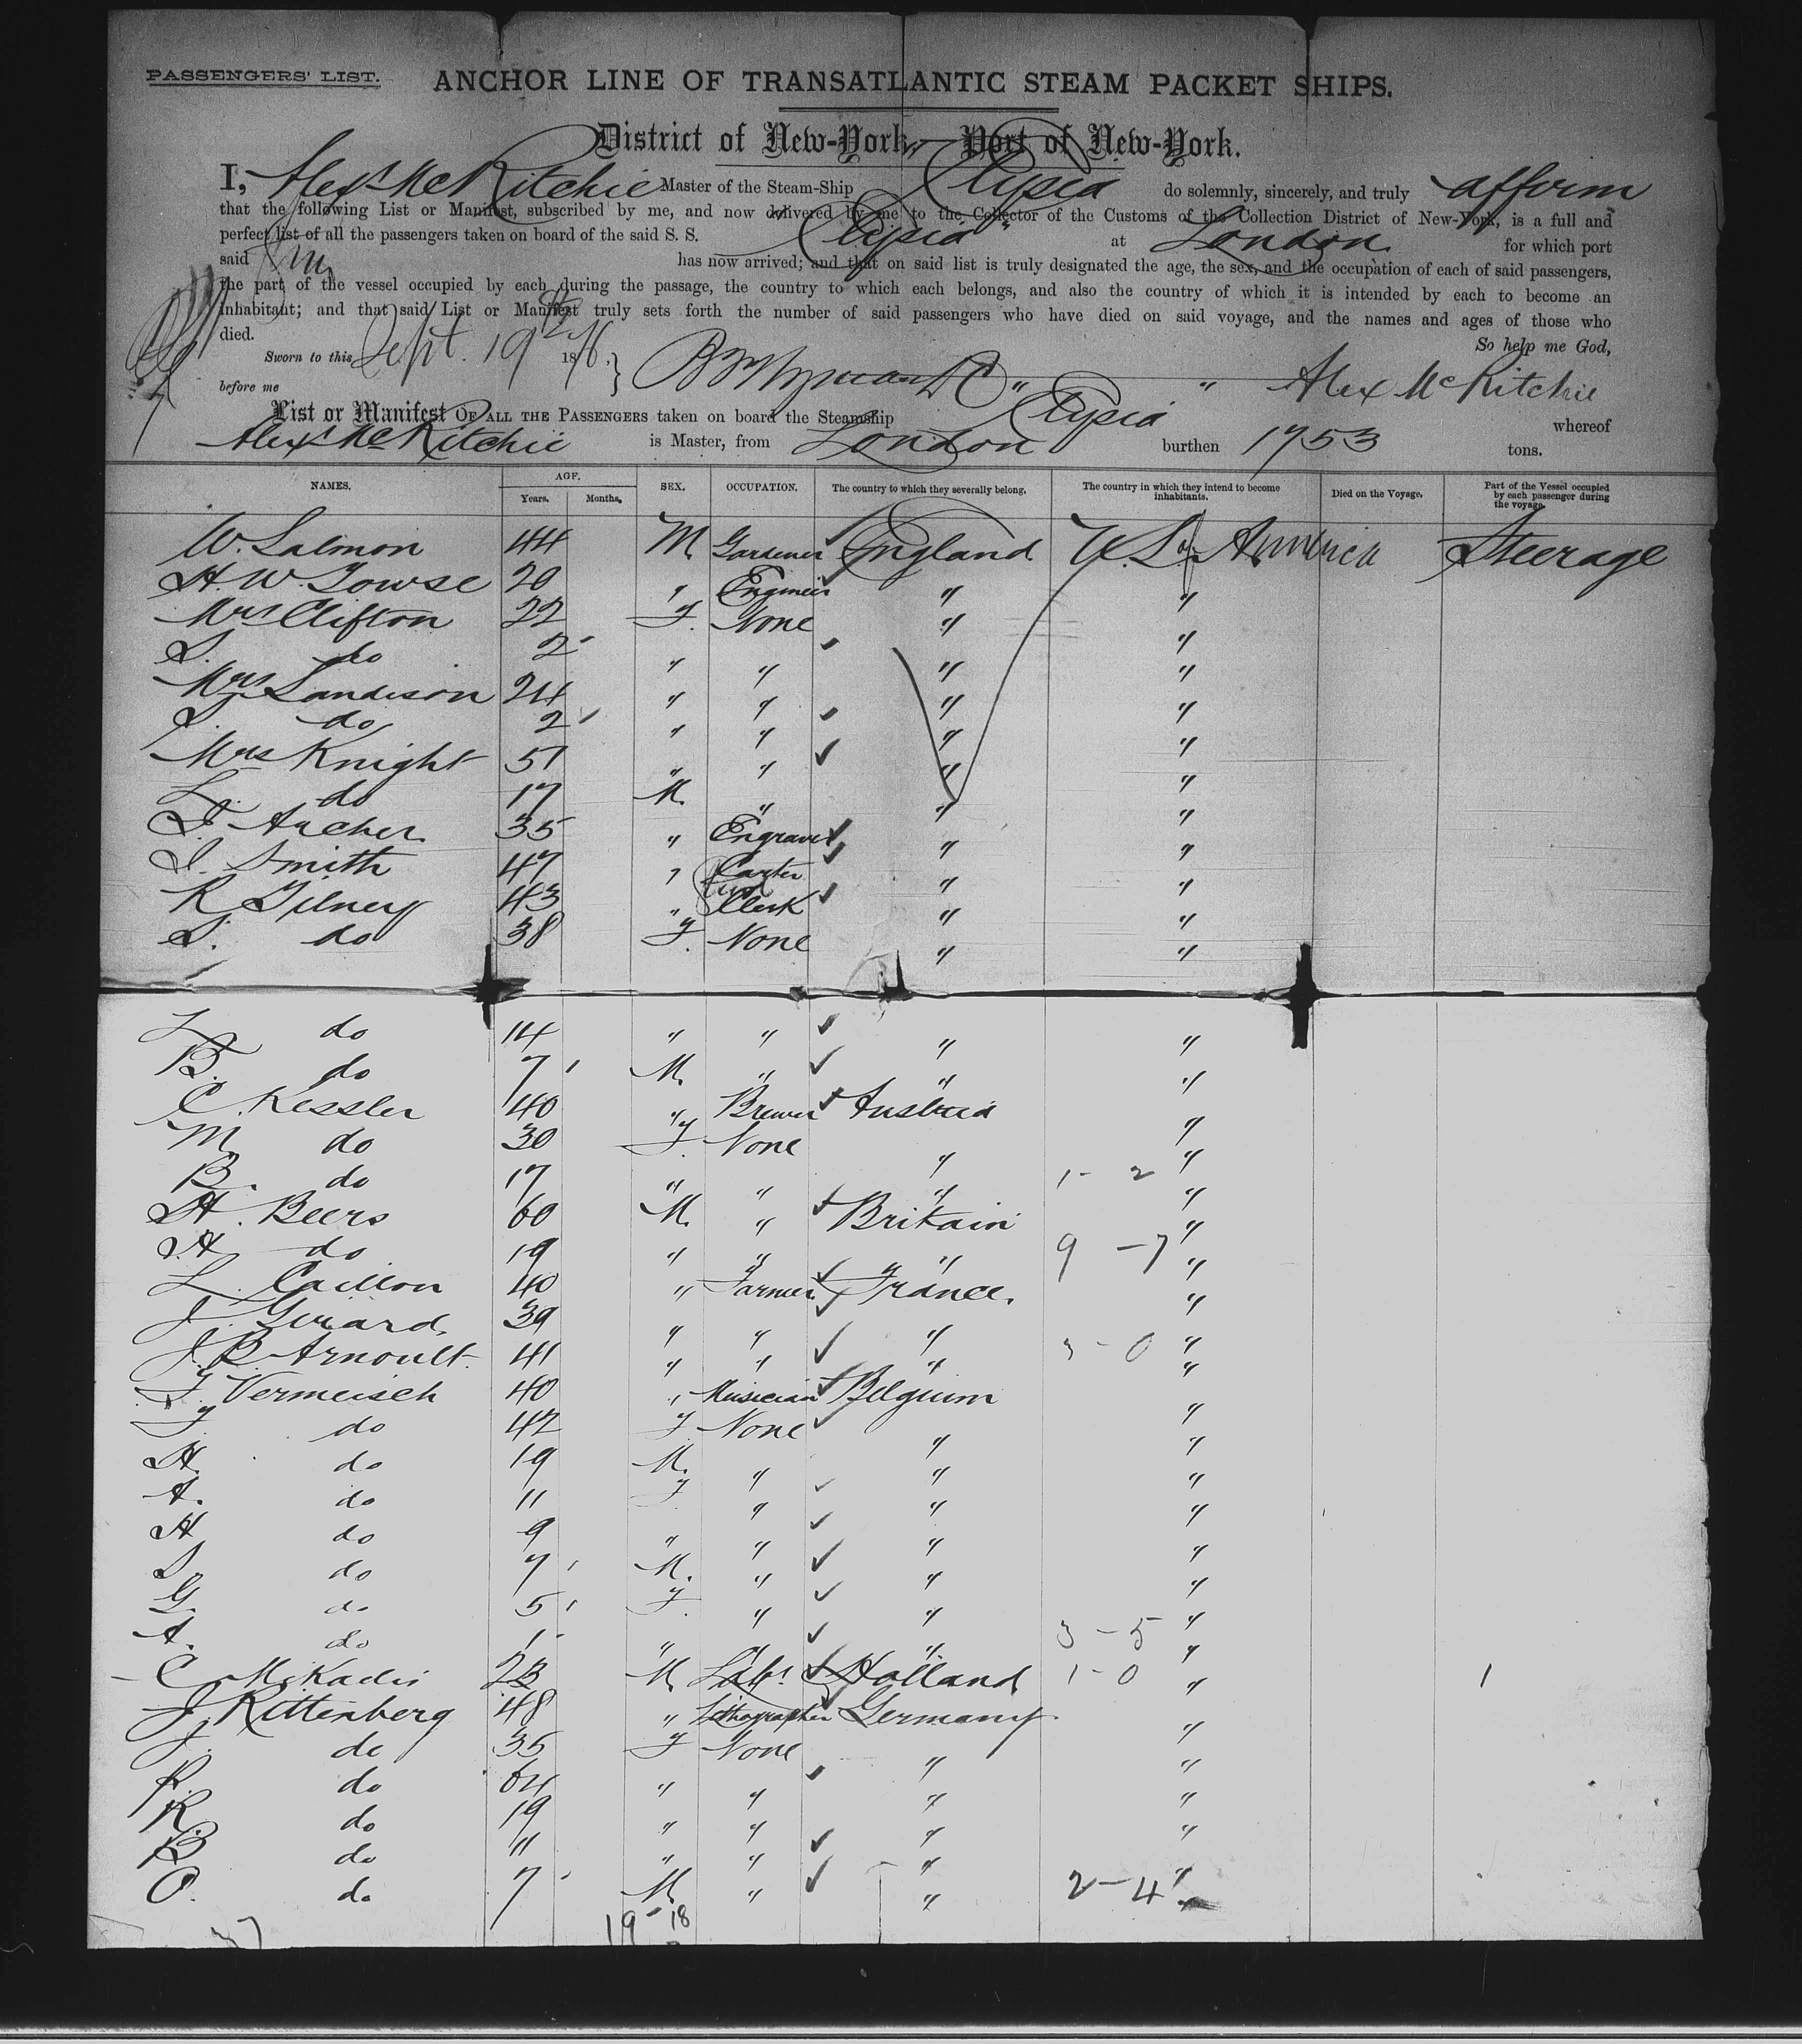 PASSENGERS' LIST. ANCHOR LINE OF TRANSATLANTIC STEAM PACKET SHIPS.
District of New-York, Port of New-York.
I, Alexr McRitchie Master of the Steam-Ship "Elysia do solemnly, sincerely, and truly affirm
that the following List or Manifest, subscribed by me, and now delivered by me to the Collector of the Customs of the Collection District of New-York, is a full and
perfect list of all the passengers taken on board of the said S. S. Elysia" at London for which port
said has now arrived; and that on said list is truly designated the age, the sex, and the occupation of each of said passengers,
the part of the vessel occupied by each during the passage, the country to which each belongs, and also the country of which it is intended by each to become an
inhabitant; and that said List or Manifest truly sets forth the number of said passengers who have died on said voyage, and the names and ages of those who
died. So help me God,
Sworn to this Sept. 19th 1876. }
before me " " Alex McRitchie
List or Manifest OF ALL THE PASSENGERS taken on board the Steamship Elysia whereof
Alexr McRitchie is Master, from London burthen 1753 tons.
NAMES. AGE. Years. Months. SEX. OCCUPATION. The country to which they severally belong. The country in which they intend to become inhabitants. Died on the Voyage. Part of the Vessel occupied by each passenger during the voyage.
W. Salmon 44 M. Gardener England U.S. of America Steerage
H. W. Towse 20 " Engineer " "
Mrs Clifton 22 F. None " "
S. do 2 " " " "
Mrs Sandison 24 " " " "
S. do 2 " " " "
Mrs Knight 51 " " " "
L. do 17 M. " " "
F. Archer 35 " Engraver " "
J. Smith 47 " Carter " "
R Gilney 43 " Clerk " "
S. do 38 F. None " "
L do 14 " " " "
B. do 7 M. " " "
C. Kessler 40 " Brewer Austria "
M do 30 F. None " "
B. do 17 " " " " 1 - 2
H. Beers 60 M. " Britain "
H do 19 " " " " 9 - 7
L. Caillon 40 " Farmer France. "
J. Girard 39 " " " "
J. B. Arnoult. 41 " " " " 3 - 0
F. Vermeisch 40 " Musician Belgium "
F. do 42 F None " "
H. do 19 M. " " "
A. do 11 F " " "
H do 9 " " " "
S. do 7 M. " " "
G. do 5 F. " " "
A. do 1 " " " " 3 - 5
C. 23 M. Labr. Holland 1 - 0 " 1
J. Rittenberg 48 " Lithographer Germany "
J. do 35 F None " "
R. do 64 " " " "
R. do 19 " " " "
B. do 11 " " " "
O. do 7 M. " " 2 - 4 "
37 19 - 18